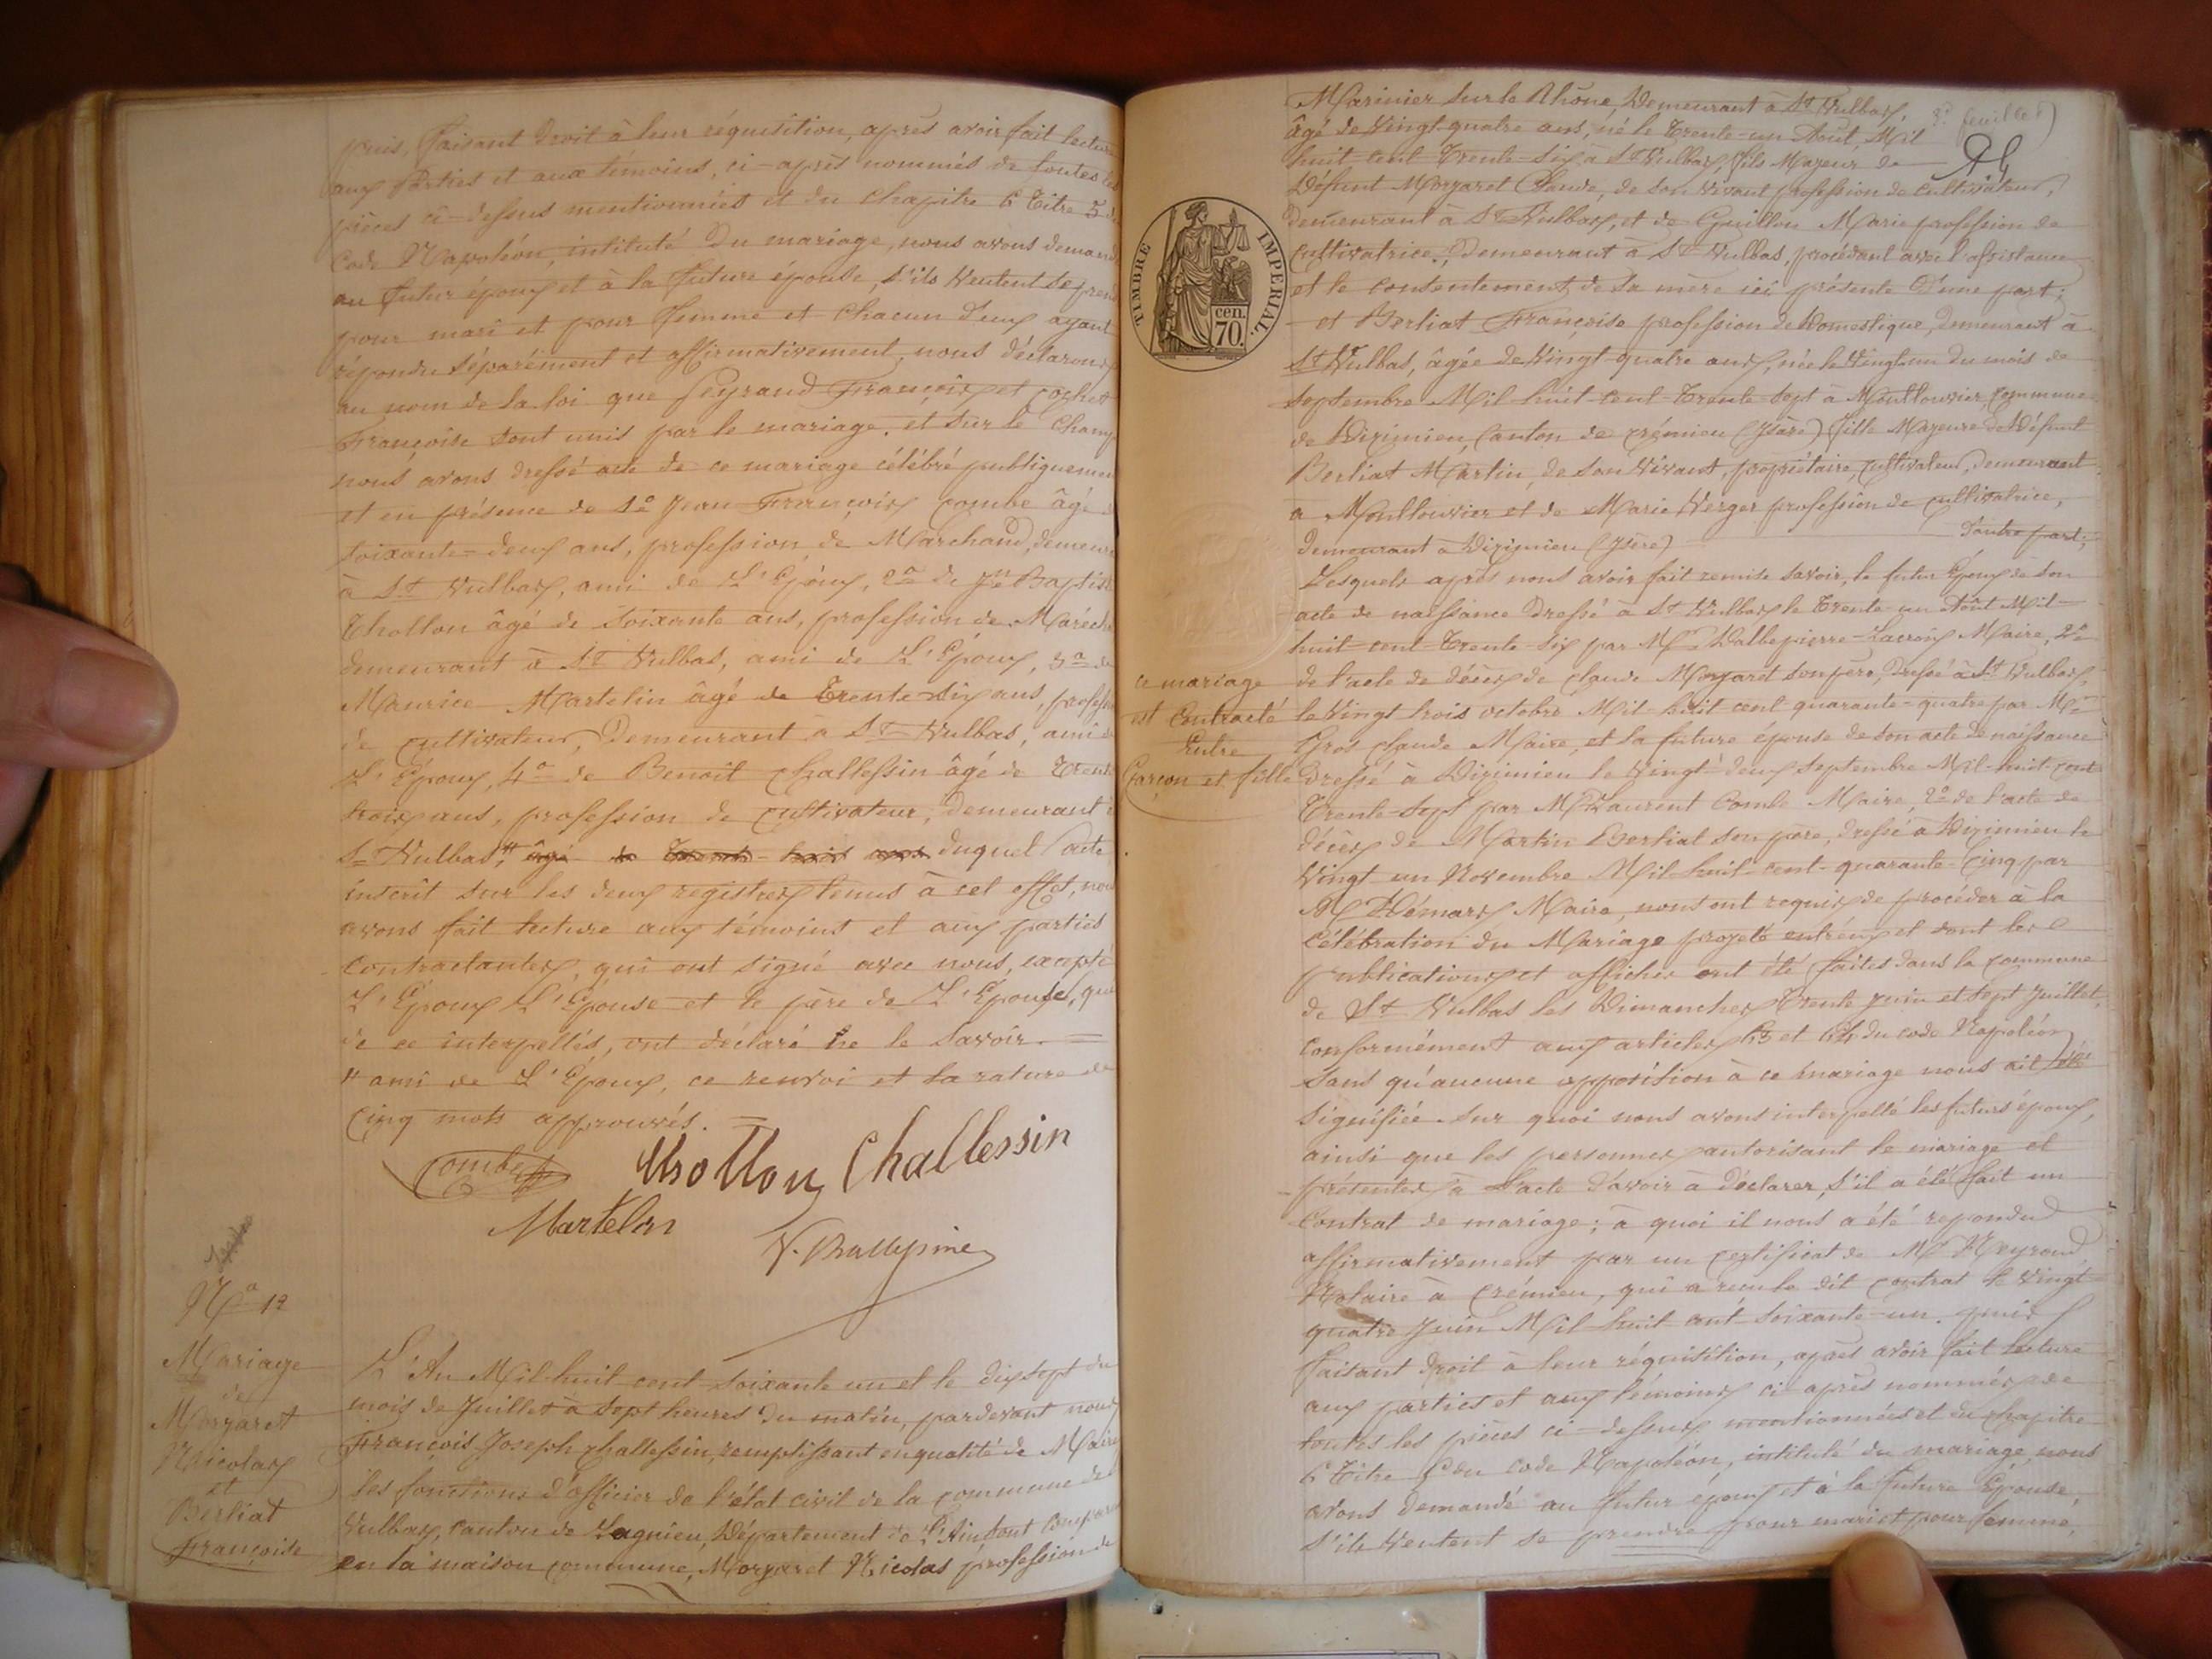 puis, faisant droit à leur réquisition, après avoir fait lecture
aux Parties et aux témoins, ci-après nommés de toutes les
pièces ci-dessus mentionnées et du chapitre 6 Titre 5 d
Code Napoléon, intitulé Du mariage, nous avons demand
au futur époux et à la future épouse, s'ils veulent se pren
pour mari et pour femme et chacun d'eux ayant
répondu séparément et affirmativement, nous déclarons
au nom de la loi que Peyraud François et cochet
Françoise sont unis par le mariage. et sur le champ
nous avons dressé acte de ce mariage célébré publiquemen
et en présence de 1º Jean François Combe âgé d
soixante-deux ans, profession de Marchand, demeur
à St Vulbas, ami de L'Époux, 2º de Jn Baptis
Thollon âgé de soixante ans, profession de Maréch
demeurant à St Vulbas, ami de L'Époux, 3º de
Maurice Martelin âgé de Trente-six ans, profess
de cultivateur, Demeurant à St Vulbas, ami d
L'Époux, 4º de Benoit Challessin âgé de Trent
trois ans, profession de cultivateur, Demeurant à
St Vulbas, " âgé de Trente-trois ans duquel Acte
inscrit sur les deux registres tenus à cet effet, nou
avons fait lecture aux témoins et aux parties
contractantes, qui ont signé avec nous, excepté
L'Époux L'Épouse et le père de L'Épouse, qui
de ce interpellés, ont déclaré ne le savoir. =
" ami de L'Époux, ce renvoi et la rature de
Cinq mots approuvés. =
Combe Thollon Challessin
Martelin
Nº 12
Mariage
de
Morgaret
Nicolas
et
Berliat
Françoise
L'An Mil huit cent soixante un et le dix sept du
mois de Juillet à sept heures du matin, pardevant nous
François Joseph Challessin, remplissant en qualité de Maire
les fonctions d'officier de l'état civil de la commune de St
Vulbas, canton de Lagnieu, Département de L'Ain sont compar
en la maison commune, Morgaret Nicolas profession de
3e feuillet
Marinier sur le Rhône, Demeurant à St Vulbas,
âgé de Vingt-quatre ans, né le Trente-un Août, Mil
huit cent Trente-six à St Vulbas, fils Majeur de
Défunt Morgaret Claude, de son vivant profession de cultivateur,
demeurant à St Vulbas, et de Guillon Marie profession de
cultivatrice, Demeurant à St Vulbas, procédant avec l'assistance
et le consentement de sa mère ici présente D'une part;
et Berliat Françoise profession de Domestique, demeurant à
St Vulbas, âgée de Vingt-quatre ans, née le Vingt un du mois de
septembre Mil huit cent Trente sept à Montlouvier, commune
de Dizimieu, Canton de crémieu (Isère) fille Majeure de Défunt
Berliat Martin, de son Vivant, propriétaire, cultivateur, demeurant
à Montlouvier et de Marie Verger profession de cultivatrice,
demeurant à Dizimieu (Isère) D'autre part;
Lesquels après nous avoir fait remise savoir, le futur Époux de son
acte de naissance Dressé à St Vulbas le Trente-un Août Mil-
huit-cent-Trente-six par Mr Vallepierre-Lacroix Maire, 2º
de l'acte de décès de claude Morgaret son père, Dressé à St Vulbas,
le Vingt trois octobre Mil-huit-cent quarante-quatre par Mr
Gros claude Maire, et la future épouse de son acte de naissance
Dressé à Dizimieu le Vingt-deux septembre Mil-huit-cent
Trente-sept par Mr Laurent Comle Maire, 2º de l'acte de
décès de Martin Berliat son père, dressé à Dizimieu le
Vingt-un Novembre Mil-huit-cent-quarante-Cinq par
Mr Démars Maire, nous ont requis de procéder à la
célébration du Mariage projeté entr'eux et dont les
publications et affiches ont été faites dans la commune
de St Vulbas les Dimanches Trente juin et sept Juillet,
conformément aux articles 63 et 64 du code Napoléon
sans qu'aucune opposition à ce mariage nous ait été
signifiée. Sur quoi nous avons interpellé les futurs époux,
ainsi que les personnes autorisant le mariage et
présentes à l'acte d'avoir à déclarer, s'il a été fait un
contrat de mariage; à quoi il nous a été répondu
affirmativement par un certificat de Me Neyroud
Notaire à Crémieu, qui a reçu le dit contrat le Vingt
quatre Juin Mil huit cent soixante-un. puis
faisant droit à leur réquisition, après avoir fait lecture
aux parties et aux témoins ci-après nommés de
toutes les pièces ci-dessus mentionnées et du chapitre
6 Titre 5 du code Napoléon, intitulé du mariage, nous
avons demandé au futur époux et à la future Épouse,
s'ils veulent se prendre pour mari et pour femme,
ce mariage
est Contracté
Entre
Garçon et fille
TIMBRE IMPÉRIAL.
cen.
70.